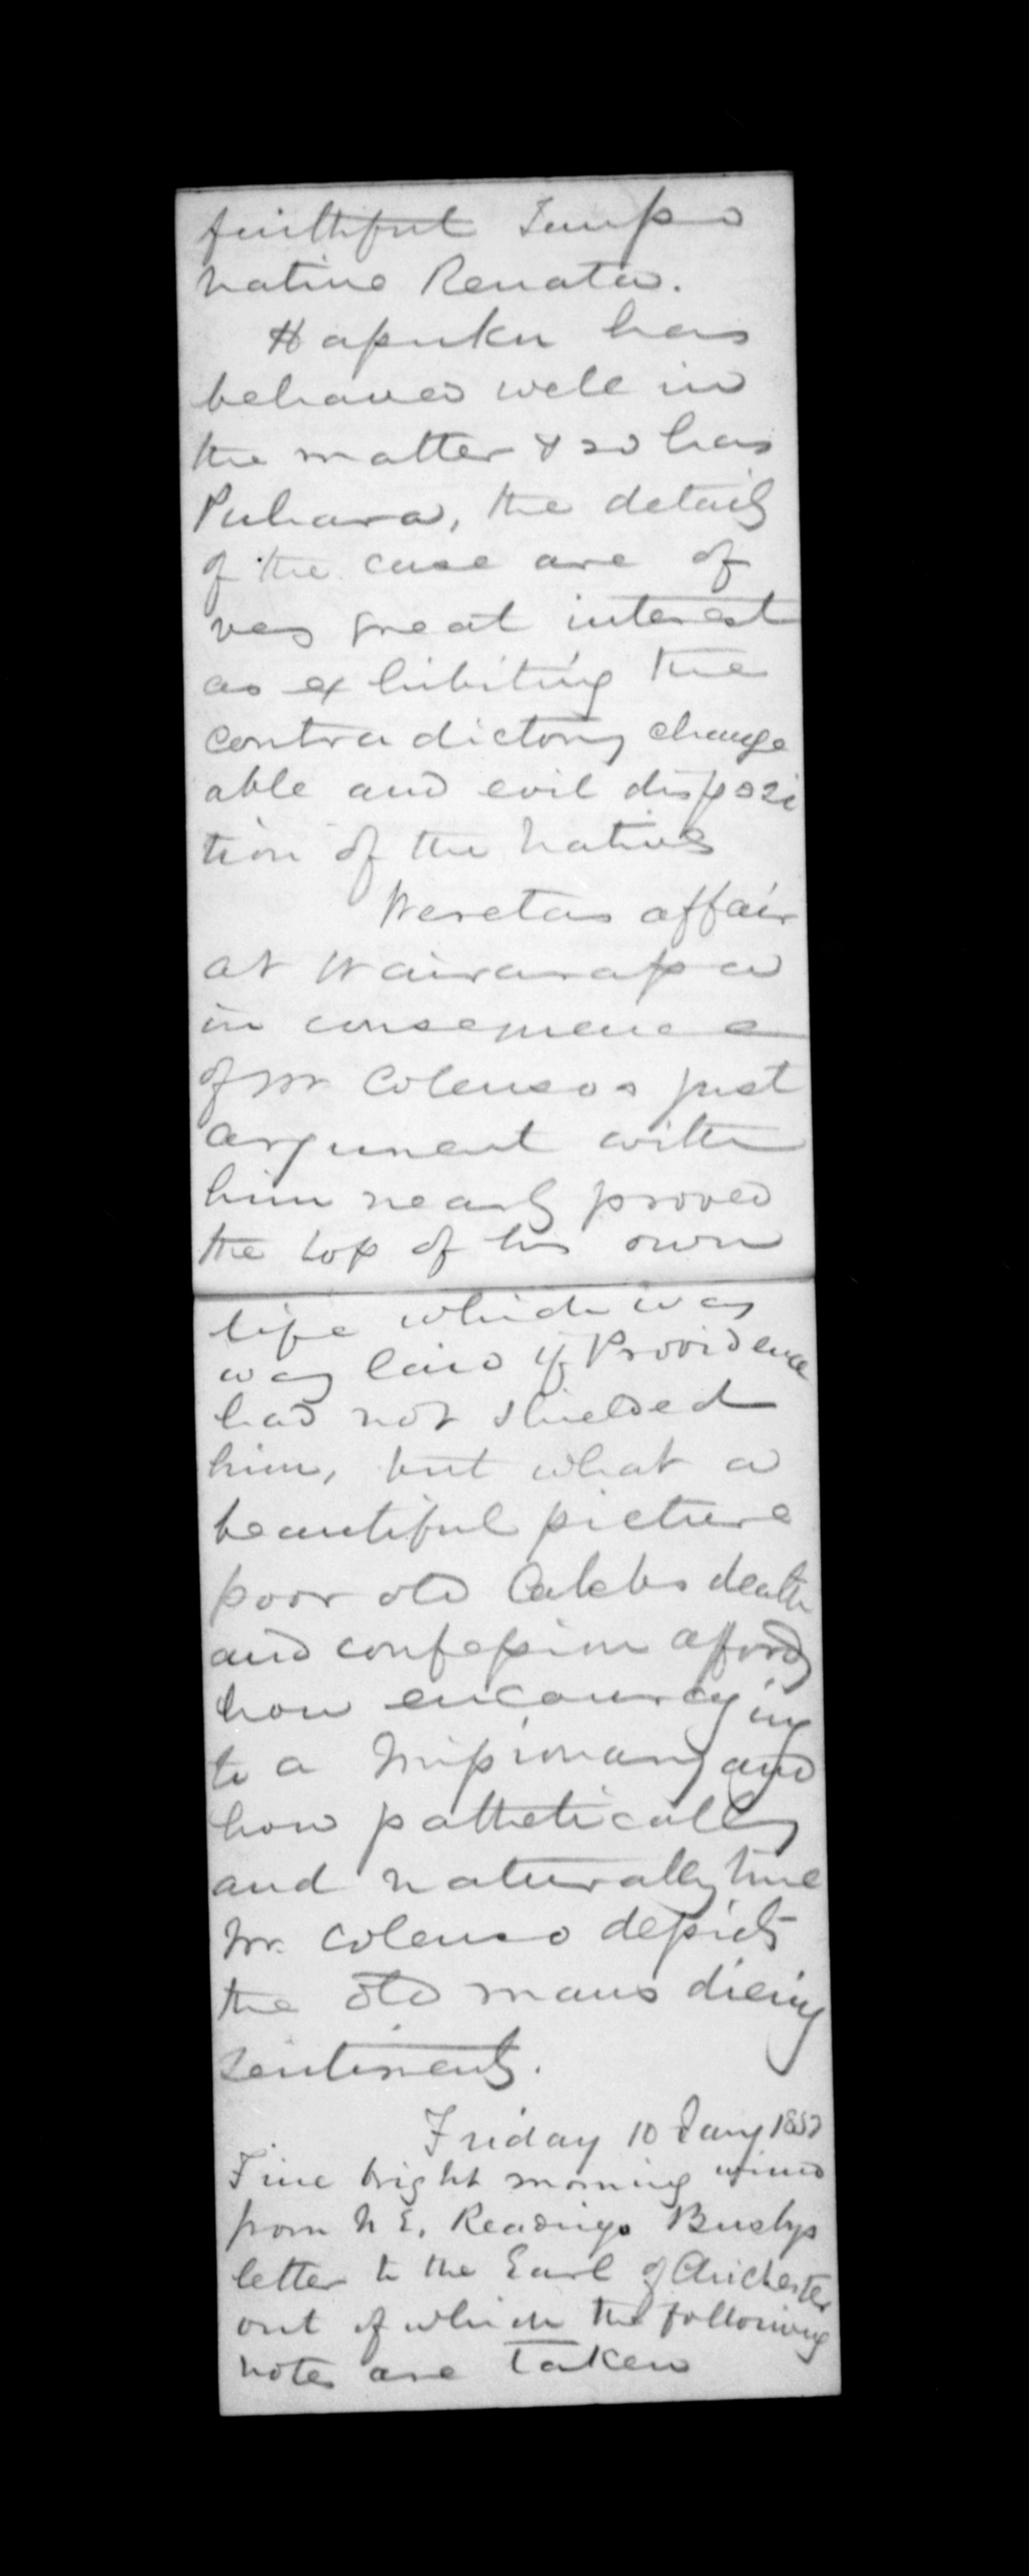 faithful Taupo
native Renata.
Hapuku has
behaved well in
the matter & so has
Puhara, the details
of the case are of
very great interest
as exhibiting the
contradictory change
able and evil disposi
tion of the natives
Weretas affair
at Wairarapa
in consequence
of Mr Colensos just
argument with
him nearly proved
the loss of his own
life which was
way laid if Providence
had not shielded
him, but what a
beautiful picture
poor old Calebs death
and confession affords
how encouraging
to a Missionary and
how pathetically
and naturally true
Mr. Colenso depicts
the old mans dieing
sentiments.
Friday 10 Jany
Fine bright morning wind
from N E. Readings Busbys
letter to the Earl of Chichester
out of which the following
notes are taken